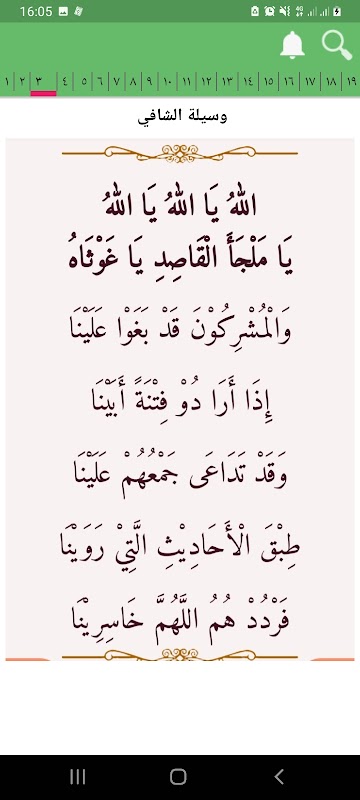 16:05
١ ٢ ٣ ٤ ٥ ٦ ٧ ٨ ٩ ١٠ ١١ ١٢ ١٣ ١٤ ١٥ ١٦ ١٧ ١٨ ١٩
وسيلة الشافي
اللهُ يَا اللهُ يَا اللهُ
يَا مَلْجَأَ الْقَاصِدِ يَا غَوْثَاهُ
وَالْمُشْرِكُوْنَ قَدْ بَغَوْا عَلَيْنَا
إِذَا أَرَا دُوْ فِتْنَةً أَبَيْنَا
وَقَدْ تَدَاعَى جَمْعُهُمْ عَلَيْنَا
طِبْقَ الْأَحَادِيْثِ الَّتِيْ رَوَيْنَا
فَرْدُدْ هُمُ اللَّهُمَّ خَاسِرِيْنَا